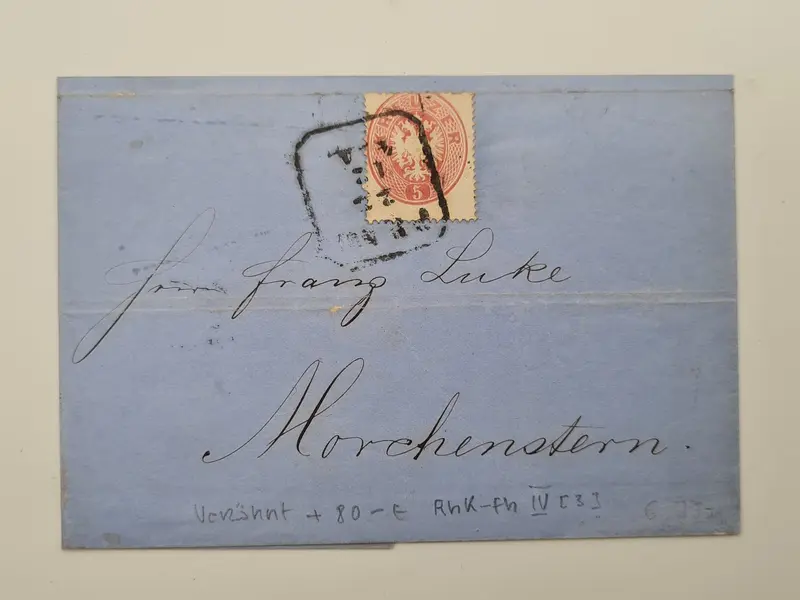 KREUZER
5
Herrn Franz Luke
Morchenstern.
Verzähnt + 80 - E RhK-fh IV [3]